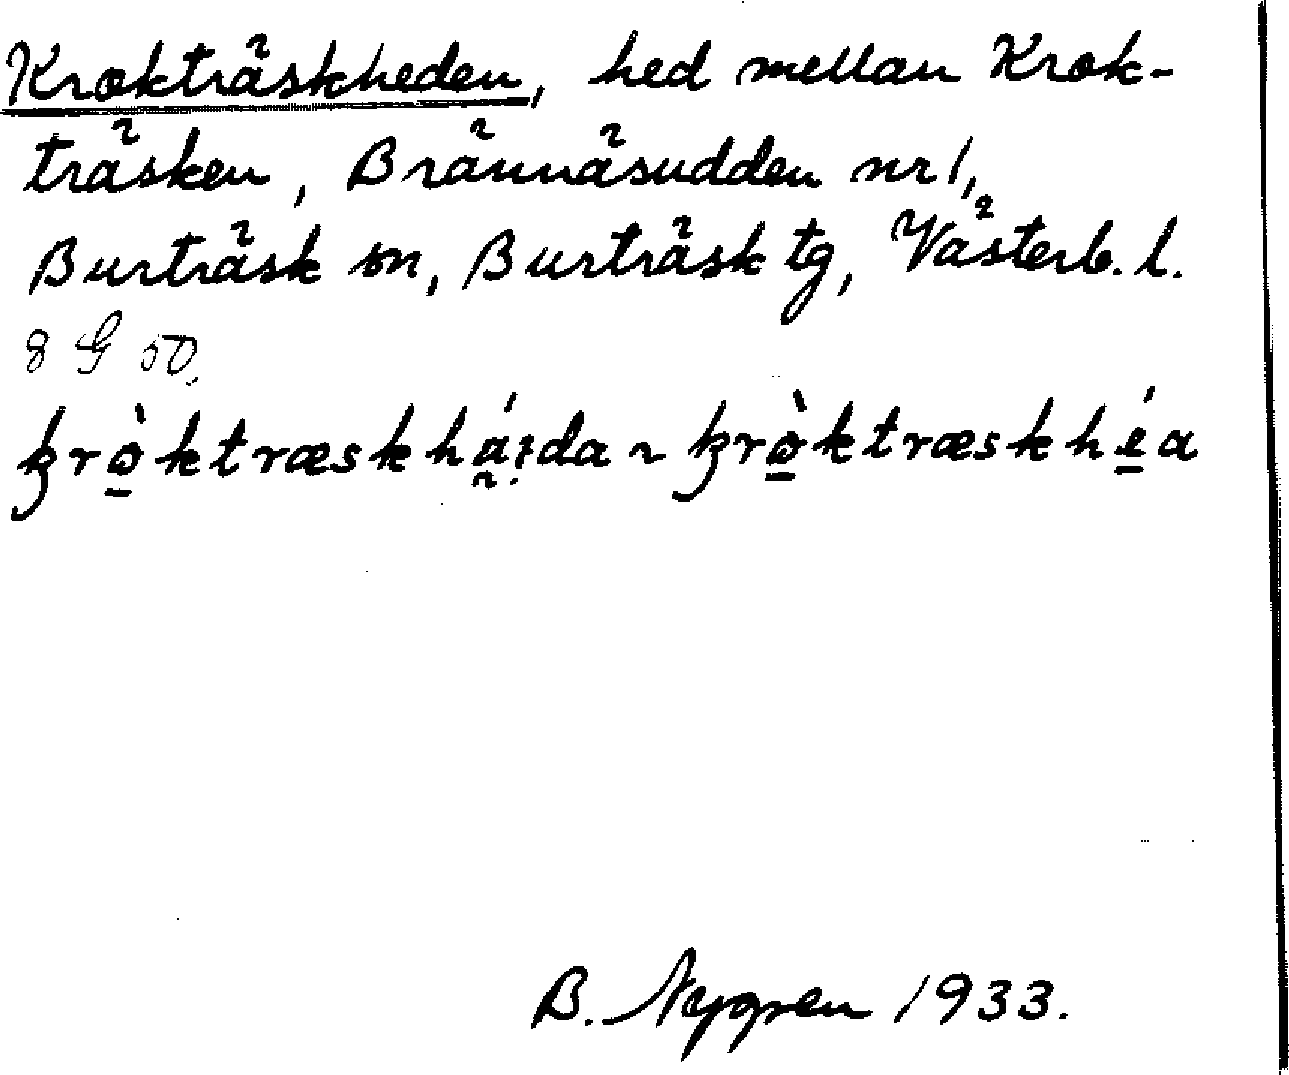 Krokträskheden, hed mellan Krok-
träsken, Brännäsudden nr 1,
Burträsk sn, Burträsk tg, Västerb. l.
8 G 50.
krò̱ktræskhá̰i̯da ~ krò̱ktræskhé̱a
B. Nygren 1933.